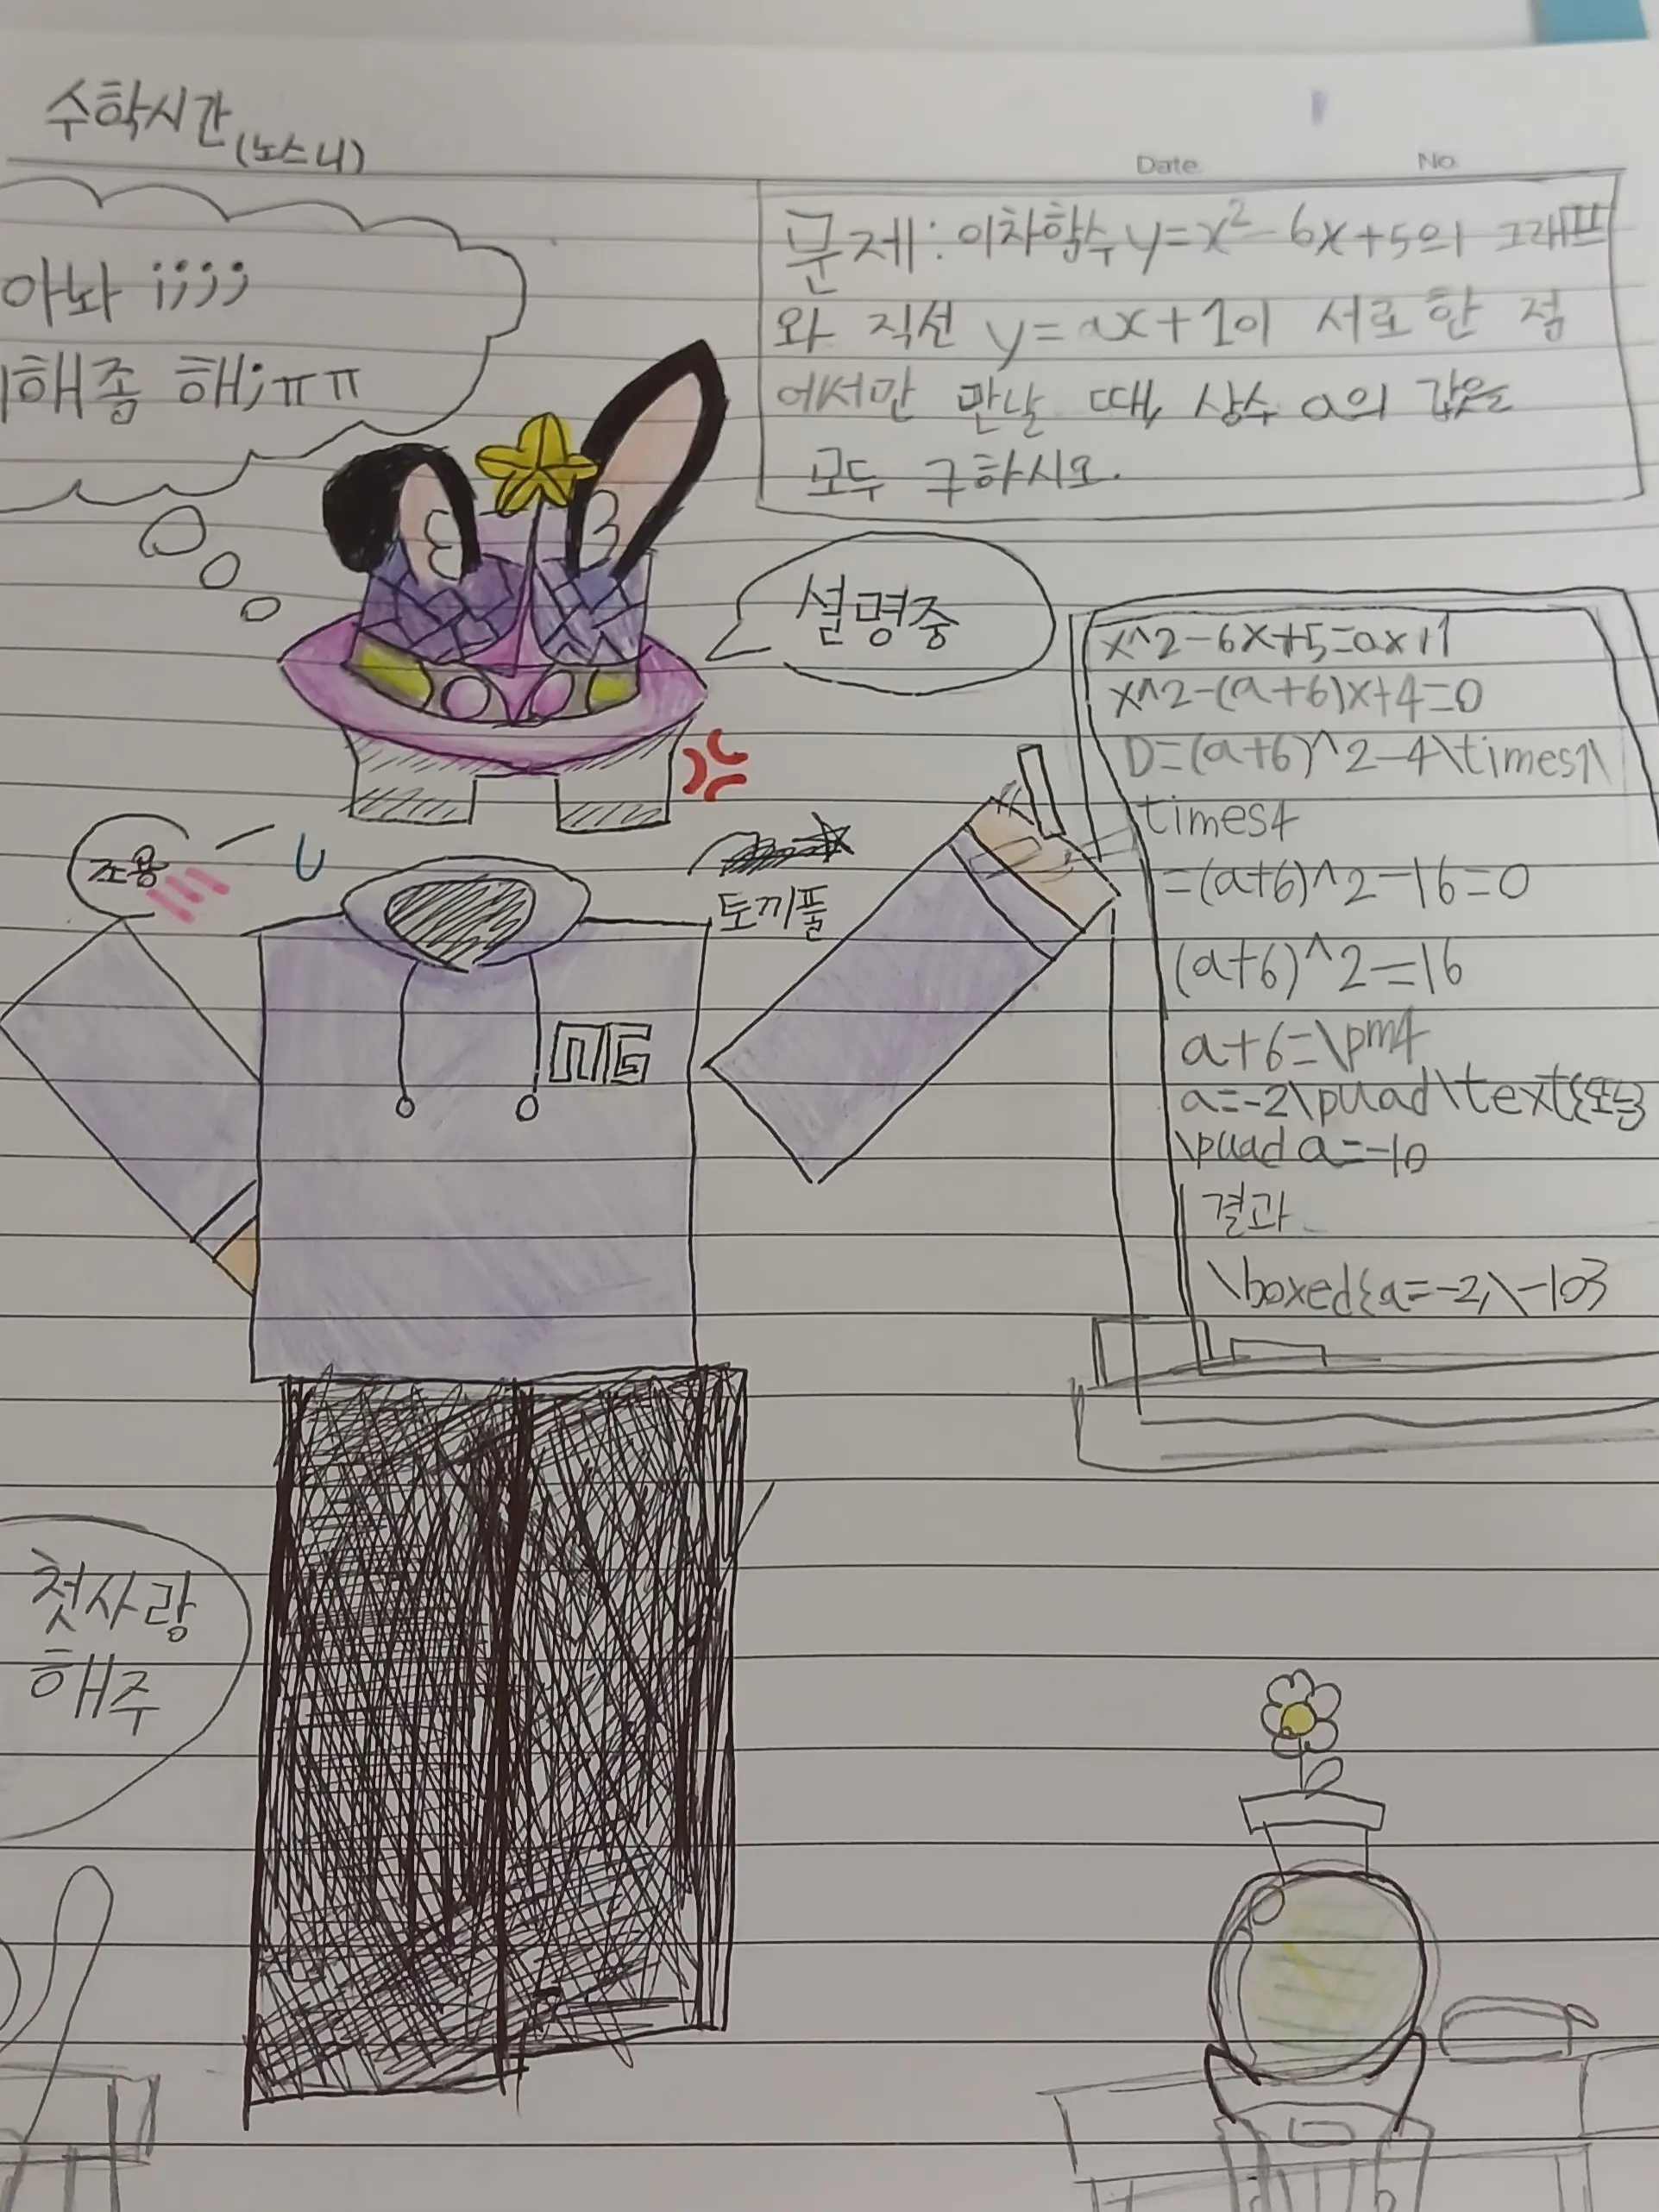 수학시간(노스니)
Date No
아놔 ;;;;
해좀 해;ㅠㅠ
문제: 이차함수 y=x²-6x+5의 그래프
와 직선 y=ax+1이 서로 한 점
에서만 만날 때, 상수 a의 값을
모두 구하시오.
설명중
조용
토끼풀
NG
x^2-6x+5=ax+1
x^2-(a+6)x+4=0
D=(a+6)^2-4\times1\
times4
=(a+6)^2-16=0
(a+6)^2=16
a+6=\pm4
a=-2\puad\text{또는
\puad a=-10
결과
\boxed{a=-2,\-10}
첫사랑
해주